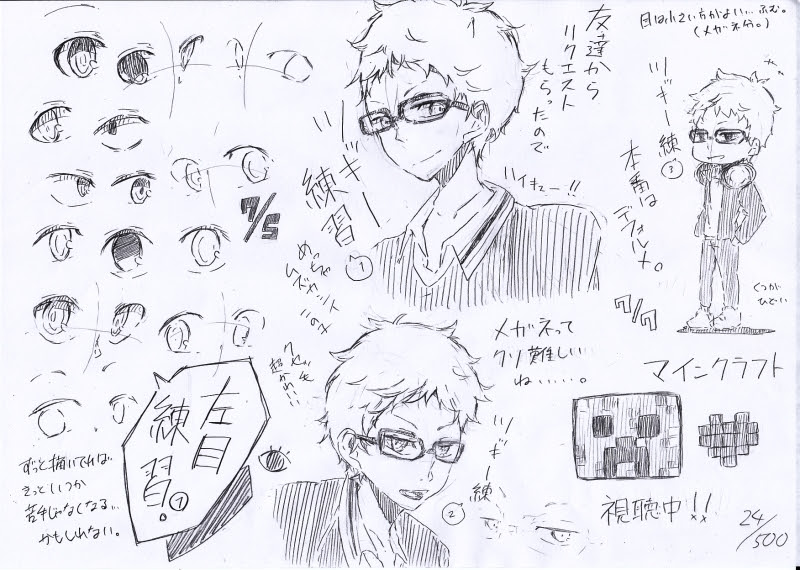 目は小さい方がよい…ふむ。
(メガネ分。)
友達から
リクエスト
もらったので
ハイキュー!!
ツッキー
練習
①
めっちゃ
ムズカシイ
7/5
ツッキー練③
本番は
デフォルメ。
くつが
ひどい
7/7
メガネって
クソ難しい…
ね……。
マインクラフト
視聴中!!
ツッキー練
②
左目
練習。①
ずっと描いてれば
きっといつか
苦手じゃなくなる…
かもしれない。
24/500